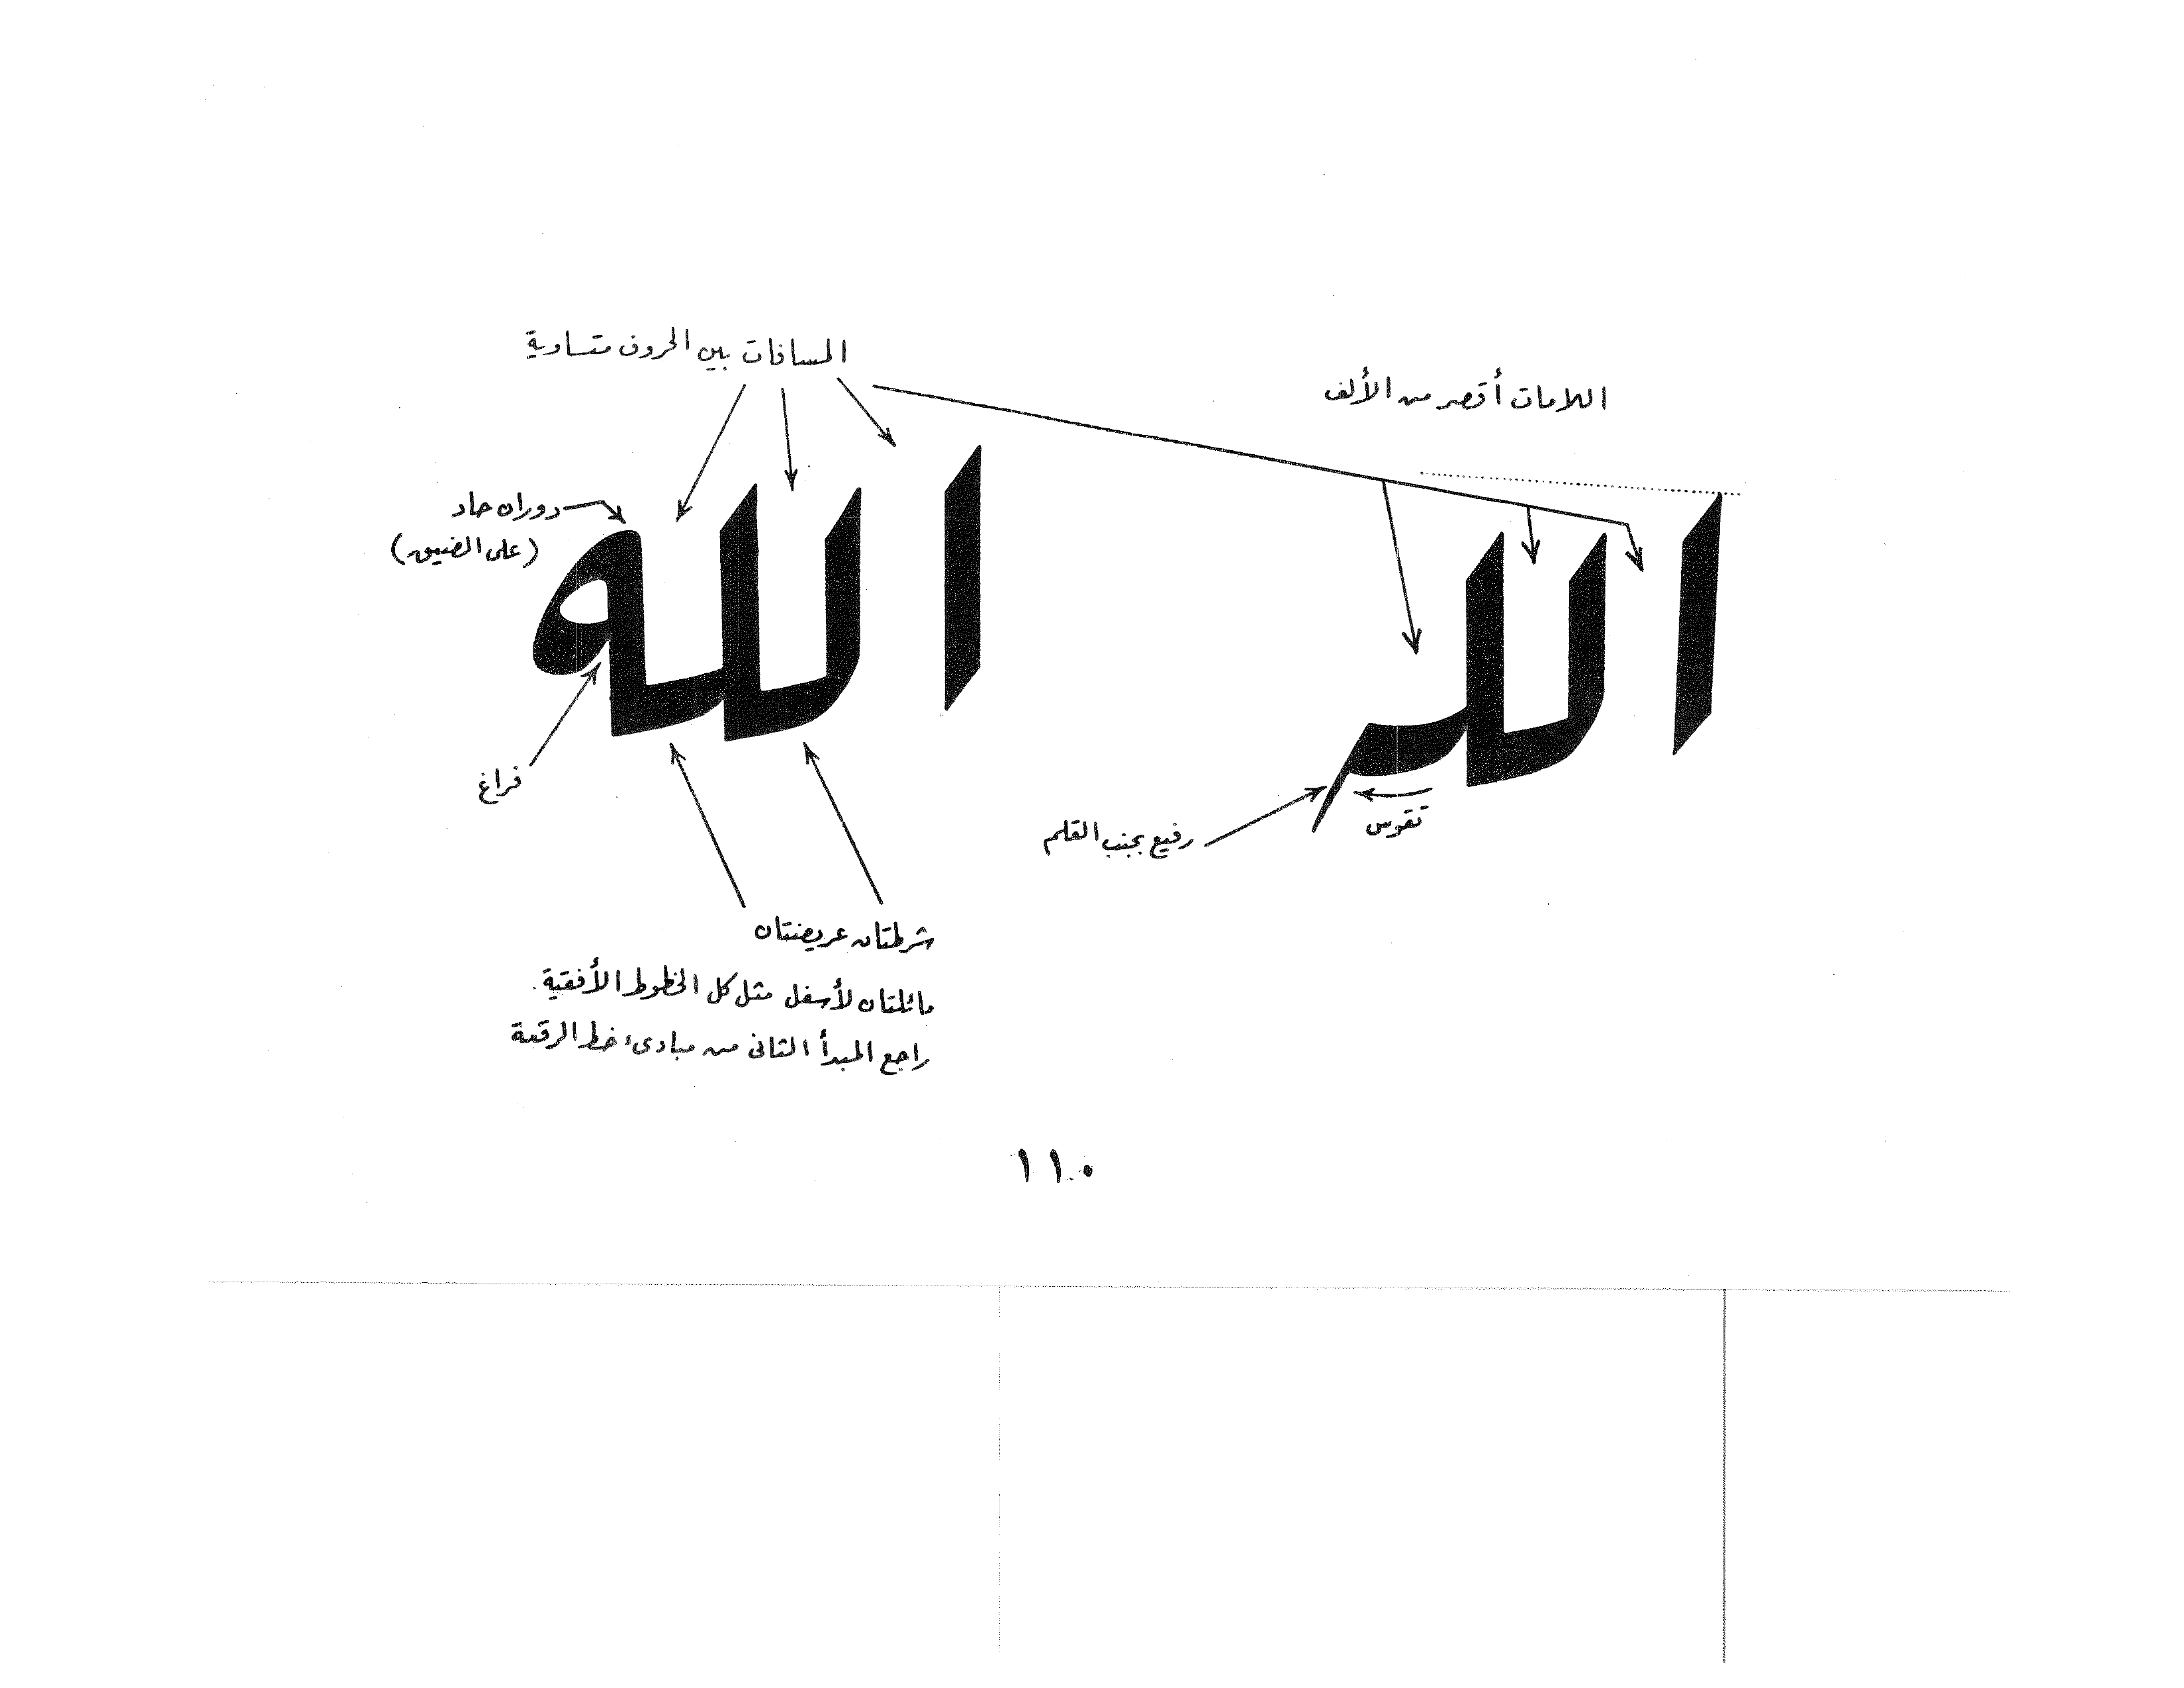 المسافات بين الحروف متساوية
اللامات أقصر من الألف
الله
الله
دوران حاد
(على الضيق)
فراغ
تقوس
رفيع بجنب القلم
شرطتان عريضتان
مائلتان لأسفل مثل كل الخطوط الأفقية.
راجع المبدأ الثانى من مبادىء خط الرقعة
١١٠